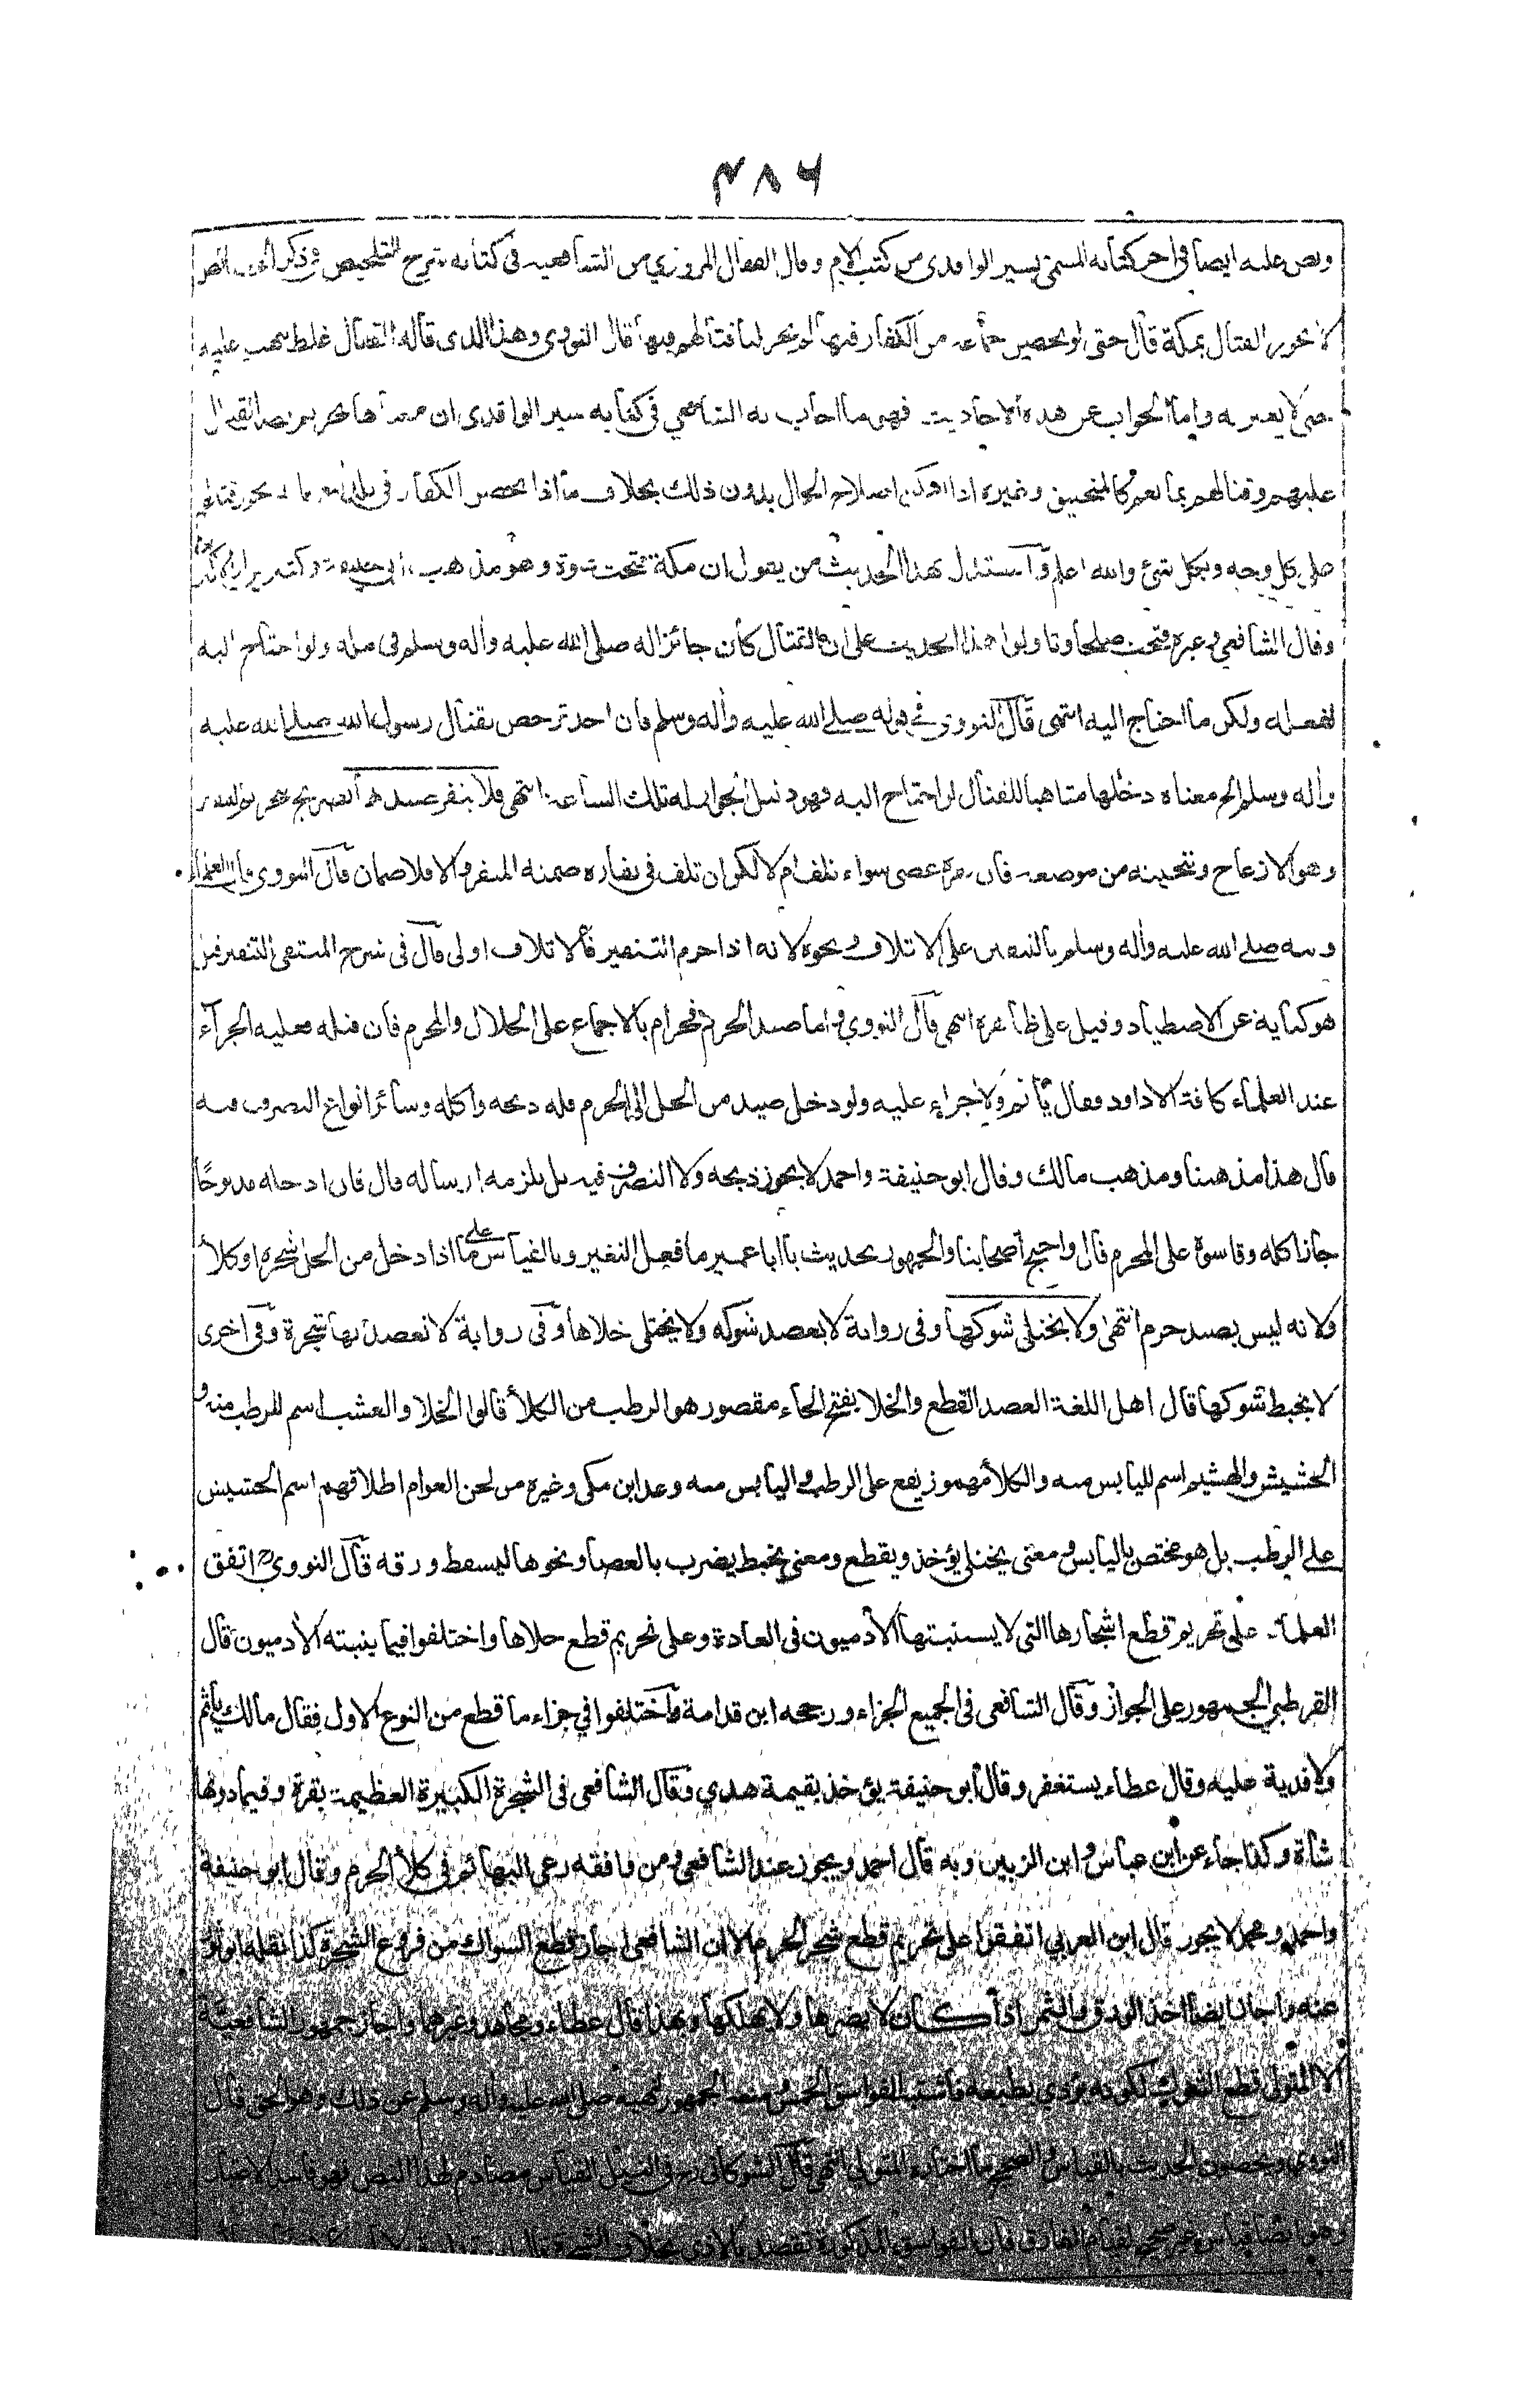 ٤٨٦
ونص عليه ايضا في اخر كتابه المسمى بسير الواقدي من كتب الام وقال القفال المروزي من الشافعية في كتابه شرح التلخيص في ذكر الخصائص
لا يجوز القتال بمكة قال حتى لو تحصن جماعة من الكفار فيها لم يجز لنا قتالهم فيها قال النووي وهذا الذي قاله القفال غلط نبهت عليه
حتى لا يغتر به واما الجواب عن هذه الاحاديث فهو ما اجاب به الشافعي في كتابه سير الواقدي ان معناها تحريم نصب القتال
عليهم وقتالهم بما يعم كالمنجنيق وغيره اذا امكن اصلاح الحال بدون ذلك بخلاف ما اذا تحصن الكفار في بلد اخر فانه يجوز قتالهم
على كل وجه وبكل شئ والله اعلم وقد استدل بهذا الحديث من يقول ان مكة فتحت عنوة وهو مذهب ابي حنيفة وكثيرين او الاكثرين
وقال الشافعي وغيره فتحت صلحا وتاولوا هذا الحديث على ان القتال كان جائزا له صلى الله عليه وأله وسلم في مكة ولو احتاج اليه
لفعله ولكن ما احتاج اليه انتهى قال النووي في قوله صلى الله عليه وأله وسلم فان احد ترخص بقتال رسول الله صلى الله عليه
وأله وسلم الخ معناه دخلها متاهبا للقتال لو احتاج اليه فهو دليل الجواز له تلك الساعة انتهى فلا ينفر صيدها تصريح بتحريم التنفير
وهو الازعاج وتنحيته من موضعه فان نفره عصى سواء تلف ام لا لكن ان تلف في نفاره ضمنه المنفر والا فلا ضمان قال النووي قال العلماء
ونبه صلى الله عليه وأله وسلم بالتنفير على الاتلاف ونحوه لانه اذا حرم التنفير فالاتلاف اولى قال في شرح المنتقى التنفير قيل
هو كناية عن الاصطياد وقيل على ظاهره انتهى قال النووي واما صيد الحرم فحرام بالاجماع على الحلال والمحرم فان قتله فعليه الجزاء
عند العلماء كافة الا داود فقال يأثم ولا جزاء عليه ولو دخل صيد من الحل الى الحرم فله ذبحه واكله وسائر انواع التصرف فيه
قال هذا مذهبنا ومذهب مالك وقال ابو حنيفة واحمد لا يجوز ذبحه ولا التصرف فيه بل يلزمه ارساله قال فان ادخله مذبوحًا
جاز اكله وقاسوه على المحرم قال واحتج اصحابنا والجمهور بحديث يا ابا عمير ما فعل النغير وبالقياس على ما اذا دخل من الحل شجرة او كلأ
ولانه ليس بصيد حرم انتهى ولا يختلى شوكها وفي رواية لا يعضد شوكه ولا يختلى خلاها وفي رواية لا تعضد بها شجرة وفي اخرى
لا يخبط شوكها قال اهل اللغة العضد القطع والخلا بفتح الخاء مقصور هو الرطب من الكلأ قالوا الخلا والعشب اسم للرطب منه و
الحشيش والهشيم اسم لليابس منه والكلأ مهموز يقع على الرطب واليابس منه وعد ابن مكي وغيره من لحن العوام اطلاقهم اسم الحشيش
على الرطب بل هو مختص باليابس ومعنى يختلى يؤخذ ويقطع ومعنى يخبط يضرب بالعصا ونحوها ليسقط ورقه قال النووي رح اتفق
العلماء على تحريم قطع اشجارها التي لا يستنبتها الأدميون في العادة وعلى تحريم قطع خلاها واختلفوا فيما ينبته الأدميون قال
القرطبي الجمهور على الجواز وقال الشافعي في الجميع الجزاء ورجحه ابن قدامة واختلفوا في جزاء ما قطع من النوع الاول فقال مالك يأثم
ولا فدية عليه وقال عطاء يستغفر وقال ابو حنيفة يؤخذ بقيمة هدي وقال الشافعي في الشجرة الكبيرة العظيمة بقرة وفيما دونها
شاة وكذا جاء عن ابن عباس وابن الزبير وبه قال احمد ويجوز عند الشافعي ومن وافقه رعي البهائم في كلأ الحرم وقال ابو حنيفة
واحمد ومحمد لا يجوز قال ابن العربي اتفقوا على تحريم قطع شجر الحرم الا ان الشافعي اجاز قطع السواك من فروع الشجرة كذا نقله ابو ثور
عنه واجاز ايضا اخذ الورق والثمر اذا كان لا يضرها ولا يهلكها وبهذا قال عطاء ومجاهد وغيرهما واجاز جمهور الشافعية
الا المتولي قطع الشوك لكونه يؤذي بطبعه فاشبه الفواسق الخمس ومنعه الجمهور لنهيه صلى الله عليه وأله وسلم عن ذلك وهو الحق قال
النووي وتخصيص الحديث بالقياس والصحيح ما اختاره المتولي انتهى قال الشوكاني رح في النيل القياس مصادم لهذا النص فهو فاسد الاعتبار
وهو ايضا قياس غير صحيح لقيام الفارق فان الفواسق المذكورة تقصد بالاذى بخلاف الشجرة